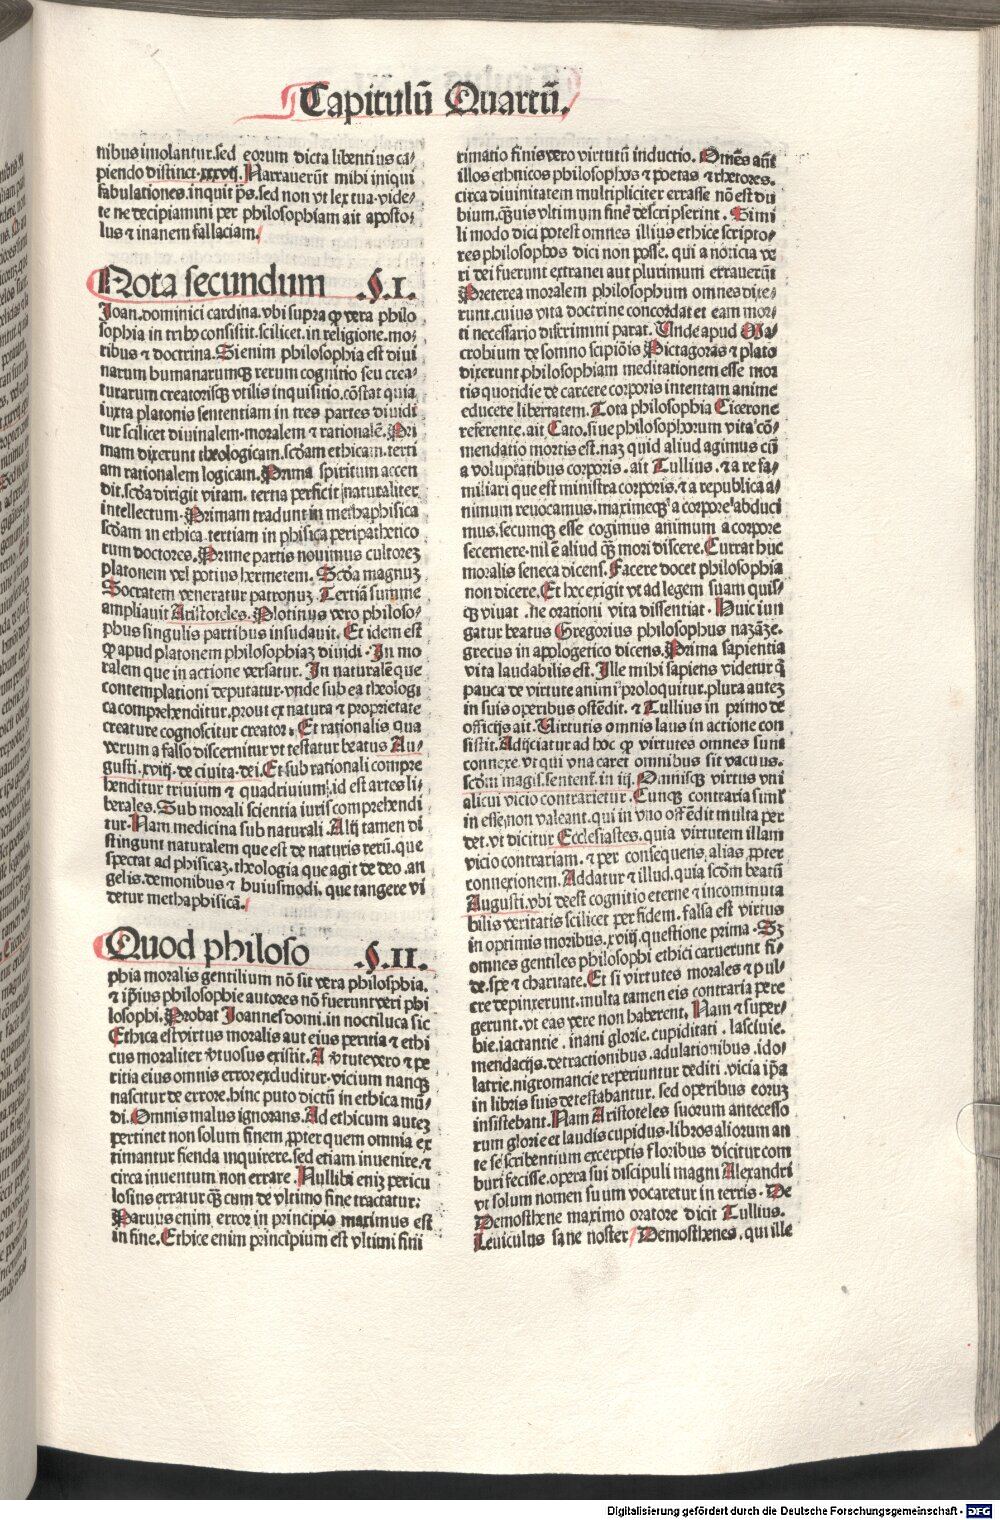 Capitulū Quartū.
nibus imolantur. sed eorum dicta libentius ca⸗
piendo distinct. xxxvij. Narrauerūt mihi iniqui
fabulationes. inquit p̄s. sed non vt lex tua. vide⸗
te ne decipiamini per philosophiam ait aposto⸗
lus ⁊ inanem fallaciam.
Nota secundum .§.I.
Joan. dominici cardina. vbi supra ꝙ vera philo
sophia in tribꝰ consistit. scilicet. in religione. mo⸗
ribus ⁊ doctrina. Si enim philosophia est diui
narum humanarumqꝫ rerum cognitio seu crea⸗
turarum creatorisqꝫ vtilis inquisitio. cōstat quia
iuxta platonis sententiam in tres partes diuidi
tur scilicet diuinalem. moralem ⁊ rationalē. Pri
mam dixerunt theologicam. scdam ethicam. terti
am rationalem logicam. Prima spiritum accen
dit. scda dirigit vitam. terna perficit naturaliter
intellectum. Primam tradunt in methaphisica
scdam in ethica. tertiam in phisica peripathetico
rum doctores. Prime partis nouimus cultorez
platonem vel potius hermetem. Scda magnuz
Socratem veneratur patronuz. Tertiā summe
ampliauit Aristoteles. Plotinus vero philoso⸗
phus singulis partibus insudauit. Et idem est
ꝙ apud platonem philosophiaz diuidi. In mo
ralem que in actione versatur. In naturalē que
contemplationi deputatur. vnde sub ea theologi
ca comprehenditur. prout ex natura ⁊ proprietate
creature cognoscitur creator. Et rationalis qua
verum a falso discernitur vt testatur beatus Au⸗
gusti. xviij. de ciuita. dei. Et sub rationali compre
henditur triuium ⁊ quadriuium. id est artes li⸗
berales. Sub morali scientia iuris comprehendi
tur. Nam medicina sub naturali. Alij tamen di
stingunt naturalem que est de naturis rerū. que
spectat ad phisicaz. theologia que agit de deo. an
gelis. demonibus ⁊ huiusmodi. que tangere vi
detur methaphisicā.
Quod philoso .§.II.
phia moralis gentilium nō sit vera philosphia.
⁊ ipsius philosophie autores nō fuerunt veri phi
losophi. Probat Joannes domi. in noctiluca sic
Ethica est virtus moralis aut eius peritia ⁊ ethi
cus moraliter v̓tuosus existit. A v̓tute vero ⁊ pe
ritia eius omnis error excluditur. vicium nanqꝫ
nascitur de errore. hinc puto dictū in ethica mū⸗
di. Omnis malus ignorans. Ad ethicum autez
pertinet non solum finem ꝓpter quem omnia ex
timantur fienda inquirere. sed etiam inuenire. ⁊
circa inuentum non errare. Nullibi enīz pericu
losius erratur qꝫ cum de vltimo fine tractatur.
Paruus enim error in principio maximus est
in fine. Ethice enim principium est vltimi finī
rimatio finis vero virtutū inductio. Omēs aūt
illos ethnicos philosophos ⁊ poetas ⁊ rhetores.
circa diuinitatem multipliciter errasse nō est du
bium. qꝫuis vltimum finē descripserint. Simi
li modo dici potest omnes illius ethice scripto⸗
res philosophos dici non posse. qui a noticia ve
ri dei fuerunt extranei aut plurimum errauerūt
Preterea moralem philosophum omnes dixe⸗
runt. cuius vita doctrine concordat et eam mor⸗
ti necessario discrimini parat. Unde apud Ma⸗
crobium de somno scipiōis Pictagoras ⁊ plato
dixerunt philosophiam meditationem esse mor
tis quotidie de carcere corporis intentam anime
educere libertatem. Tota philosophia Cicerone
referente. ait Cato. siue philosophorum vita cō⸗
mendatio mortis est. naz quid aliud agimus cū
a voluptatibus corporis. ait Tullius. ⁊ a re fa⸗
miliari que est ministra corporis. ⁊ a republica a⸗
nimum reuocamus. maximeqꝫ a corpore abduci
mus. secumqꝫ esse cogimus animum a corpore
secernere. nil ē aliud qꝫ mori discere. Currat huc
moralis seneca dicens. Facere docet philosophia
non dicere. Et hec exigit vt ad legem suam quis⸗
qꝫ viuat. ne orationi vita dissentiat. Huic iun
gatur beatus Gregorius philosophus nazāze.
grecus in apologetico dicens. Prima sapientia
vita laudabilis est. Ille mihi sapiens videtur q̄
pauca de virtute animi proloquitur. plura autez
in suis operibus ostēdit. ⁊ Tullius in primo de
officijs ait. Virtutis omnis laus in actione con
sistit. Adijciatur ad hoc ꝙ virtutes omnes sunt
connexe vt qui vna caret omnibus sit vacuus.
scdm magis. sentent. in iij. Omnisqꝫ virtus vni
alicui vicio contrarietur. Cunqꝫ contraria simł
in esse non valeant. qui in vno offēdit multa per
det. vt dicitur Ecclesiastes. quia virtutem illam
vicio contrariam. ⁊ per consequens alias ꝓpter
connexionem. Addatur ⁊ illud. quia scdm beatū
Augusti. vbi deest cognitio eterne ⁊ incommuta
bilis veritatis scilicet per fidem. falsa est virtus
in optimis moribus. xviij. questione prima. Sꝫ
omnes gentiles philosophi ethici caruerunt fi⸗
de. spe ⁊ charitate. Et si virtutes morales ⁊ pul⸗
cre depinxerunt. multa tamen eis contraria pere
gerunt. vt eas vere non haberent. Nam ⁊ super⸗
bie. iactantie. inani glorie. cupiditati. lasciuie.
mendacijs. detractionibus. adulationibus. ido⸗
latrie. nigromancie reperiuntur dediti. vicia ip̄a
in libris suis detestabantur. sed operibus eoruz
insistebant. Nam Aristoteles suorum antecesso
rum glorie et laudis cupidus. libros aliorum an
te se scribentium excerptis floribus dicitur com
buri fecisse. opera sui discipuli magni Alexandri
vt solum nomen suum vocaretur in terris. De
Demosthene maximo oratore dicit Tullius.
Leuiculus sane noster Demosthenes. qui ille
Digitalisierung gefördert durch die Deutsche Forschungsgemeinschaft - DFG